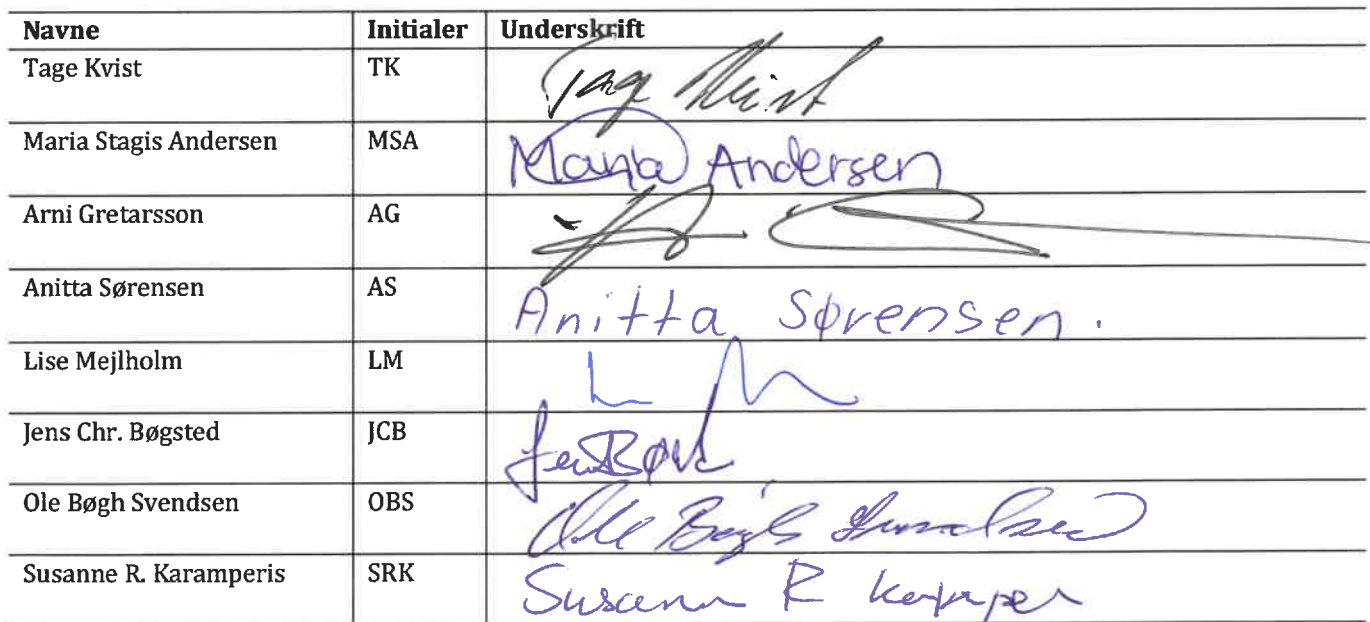 Navne Initialer Underskrift
Tage Kvist TK Tage Kvist
Maria Stagis Andersen MSA Maria Andersen
Arni Gretarsson AG
Anitta Sørensen AS Anitta Sørensen.
Lise Mejlholm LM
Jens Chr. Bøgsted JCB
Ole Bøgh Svendsen OBS Ole Bøgh Svendsen
Susanne R. Karamperis SRK Susanne R